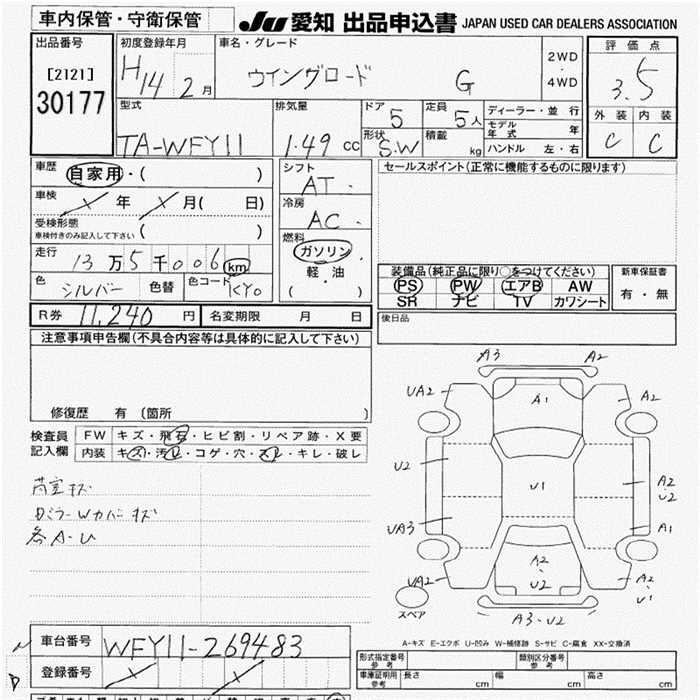 車内保管・守衛保管
JU 愛知 出品申込書 JAPAN USED CAR DEALERS ASSOCIATION
出品番号
[2121]
30177
初度登録年月
H14 2月
車名・グレード
ウイングロード G
2WD
・
4WD
評価点
3.5
外装 内装
C C
型式
TA-WFY11
排気量
1.49 CC
ドア 5
形状 S.W
定員 5人
積載 kg
ディーラー・並行
モデル年式 年
ハンドル 左・右
車歴 自家用・( )
車検 年 月( 日)
受検形態
車検付きのみ記入して下さい ( )
走行 13万5千006km
色 シルバー 色替 色コード KY0
シフト
AT
冷房
AC
燃料
ガソリン
・
軽・油
( )
セールスポイント(正常に機能するものに限ります)
装備品(純正品に限り○をつけてください)
PS PW エアB AW
SR ナビ TV カワシート
新車保証書
有・無
R券 11,240円 名変期限 月 日
後日品
注意事項申告欄(不具合内容等は具体的に記入して下さい)
修復歴 有(箇所 )
検査員記入欄
FW キズ・飛石・ヒビ割・リペア跡・X要
内装 キズ・汚レ・コゲ・穴・スレ・キレ・破レ
荷室キズ
DミラーWカバーキズ
各A-U
A3 A2
UA2 A1 A2
U2 U1 A2・U2
UA3 A1
UA2 A2・U2 A2・U1
スペア
A3-U2
A-キズ E-エクボ U-凹み W-補修跡 S-サビ C-腐食 XX-交換済
車台番号 WFY11-269483
登録番号
形式指定番号 参考
類別区分番号 参考
車庫証明用 参考 長さ cm 幅 cm 高さ cm